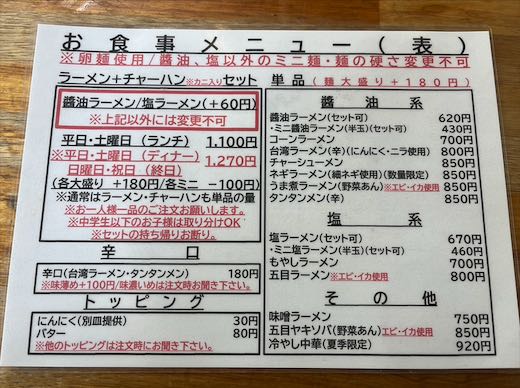 お食事メニュー(表)
※卵麺使用/醬油、塩以外のミニ麺・麺の硬さ変更不可
ラーメン+チャーハン※カニ入りセット
醬油ラーメン/塩ラーメン(+60円)
※上記以外には変更不可
平日・土曜日(ランチ) 1,100円
※平日・土曜日(ディナー)
日曜日・祝日(終日) 1,270円
(各大盛り +180円/各ミニ -100円)
※通常はラーメン・チャーハンも単品の量
※お一人様一品のご注文お願いします。
※中学生以下のお子様は取り分けOK
※セットの持ち帰りお断り。
辛口
辛口(台湾ラーメン・タンタンメン) 180円
※味薄め+100円/味濃いめは注文時お聞き下さい。
トッピング
にんにく(別皿提供) 30円
バター 80円
※他のトッピングは注文時にお聞き下さい。
単品(麺大盛り+180円)
醬油系
醬油ラーメン(セット可) 620円
・ミニ醬油ラーメン(半玉)(セット可) 430円
コーンラーメン 700円
台湾ラーメン(辛)(にんにく・ニラ使用) 800円
チャーシューメン 850円
ネギラーメン(細ネギ使用)(数量限定) 850円
うま煮ラーメン(野菜あん)※エビ・イカ使用 850円
タンタンメン(辛) 850円
塩系
塩ラーメン(セット可) 670円
・ミニ塩ラーメン(半玉)(セット可) 460円
もやしラーメン 700円
五目ラーメン※エビ・イカ使用 800円
その他
味噌ラーメン 750円
五目ヤキソバ(野菜あん)※エビ・イカ使用 850円
冷やし中華(夏季限定) 920円